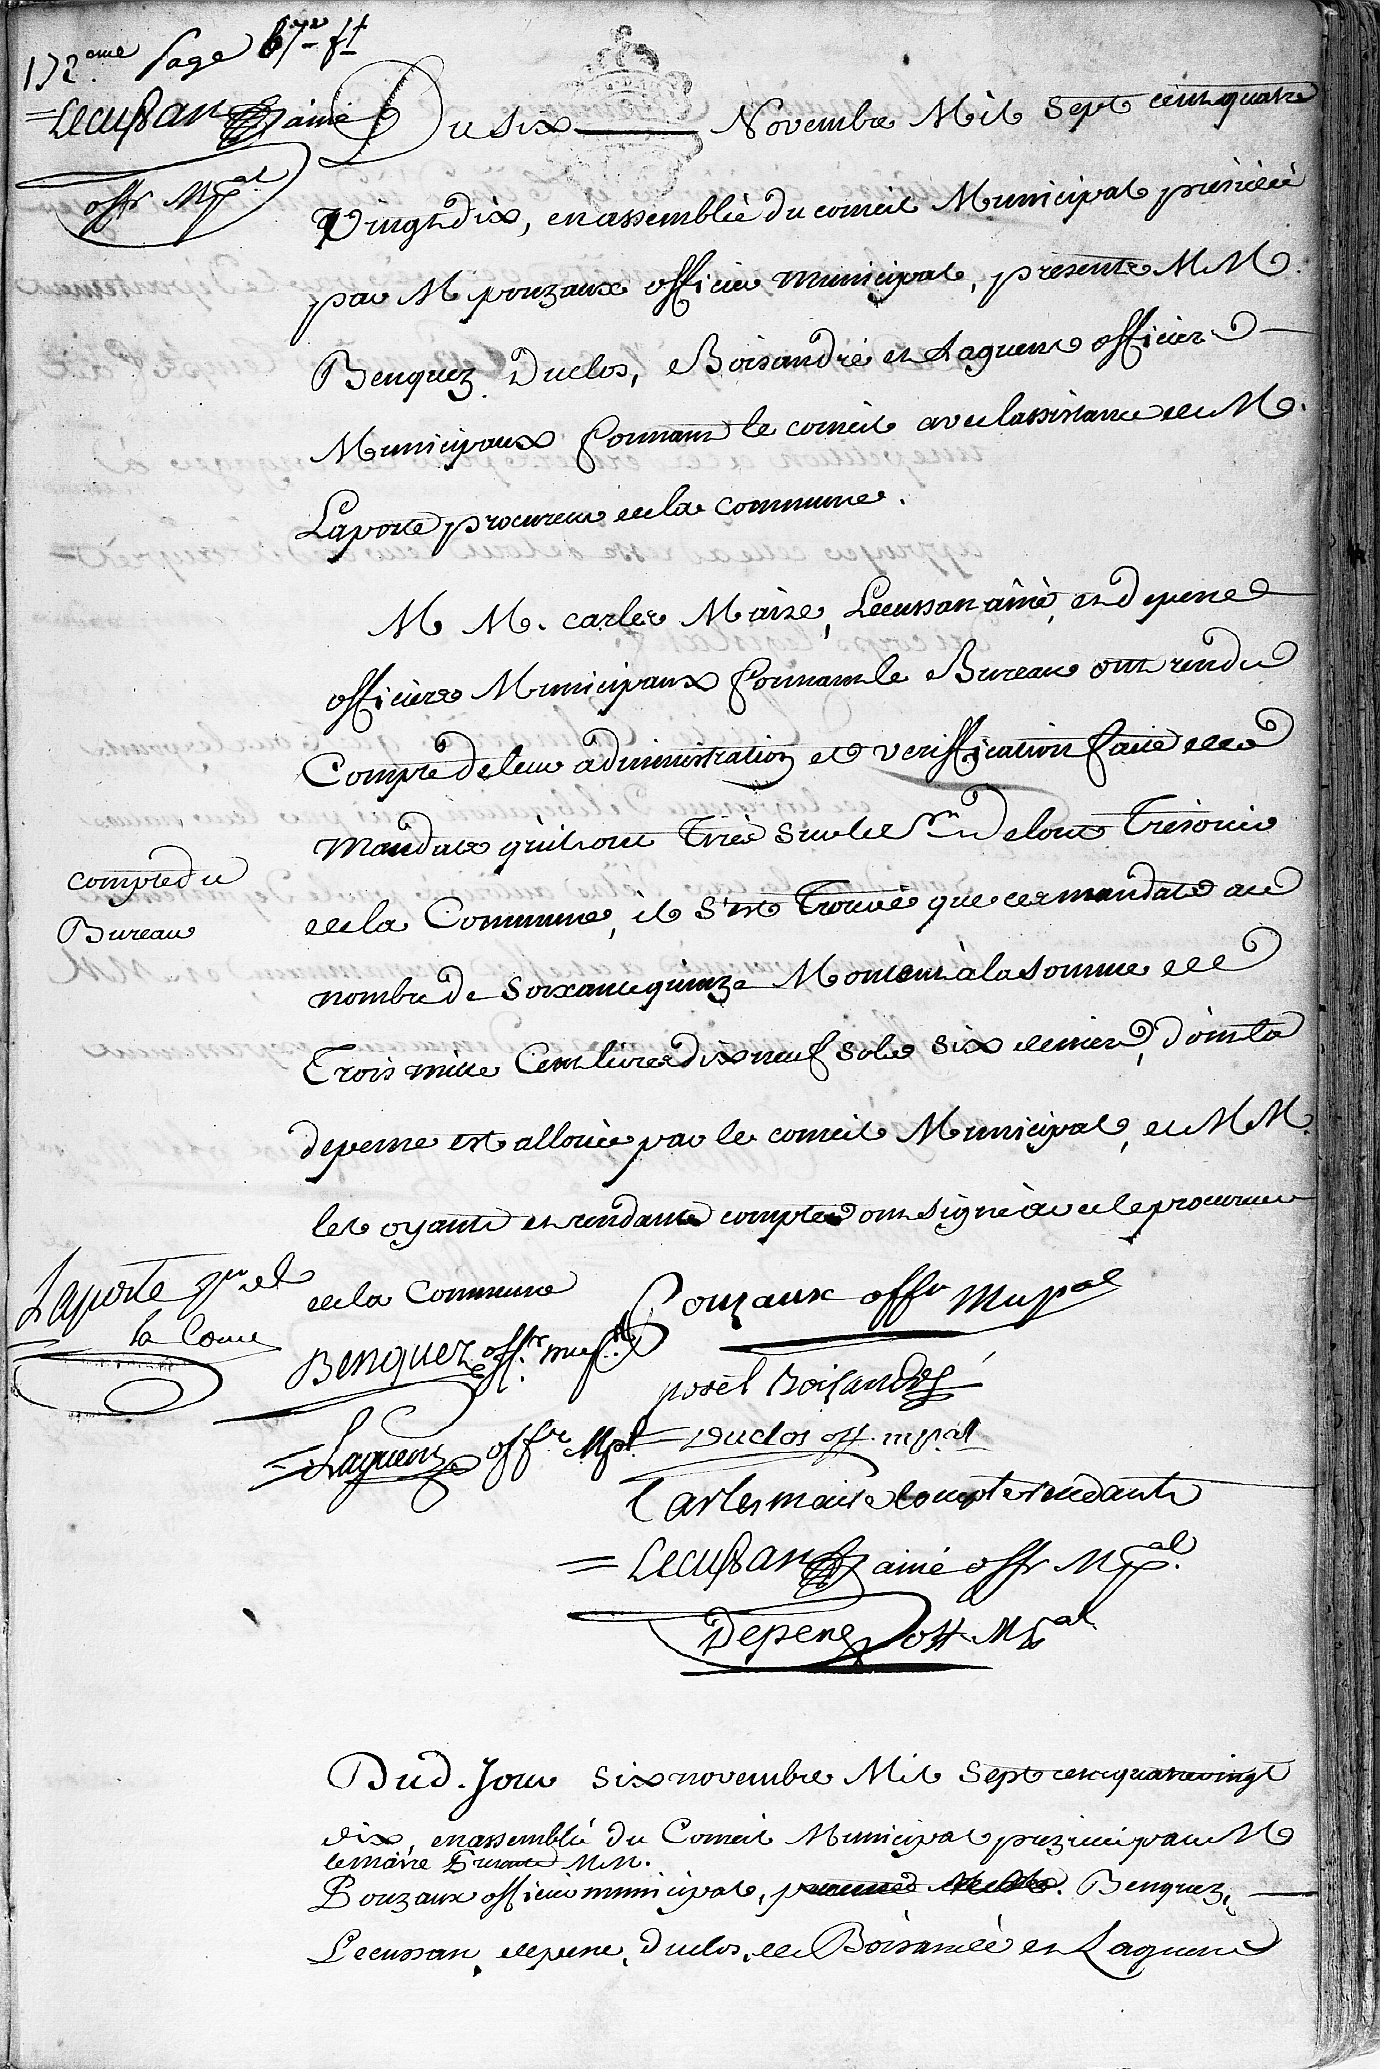 172.eme page
Lecussan ainé
offr Mpal
Du six Novembre Mil Sept cent quatre
Vingt dix, en assemblée du conseil Municipal présidée
par M pouzaux officier municipal, presents M M.
Benquez, Duclos, Boisandré et Laguens officiers
Municipaux formant le conseil avec lassistance de M.
Laporte procureur de la commune.
M M. carles Maire, Lecussan ainé, et depene
officiers Municipaux formant le Bureau ont rendu
Compte de leur administration et veriffication faite des
compte du
Bureau
mandats qu'ils ont Tirés sur le Sr Delort Trésorier
de la Commune, il s'est Trouvé que ces mandats au
nombre de soixante quinze Montent à la somme de
Trois mille Cent livres dix neuf sols six deniers, dont la
depense est allouée par le conseil Municipal, et M M.
les oyants et rendants comptes ont signé avec le procureur
de la Commune
Laporte pr de
la Come
Pouzaux offr Mupal
Benquez offr. mup.l
posel Boisandré
Laguens offr Mpl
Duclos off. mpal
Carles maire compte rendant
Lecussan ainé offr Mpal.
Depene off Mpal
Dud. Jour six novembre Mil Sept cent quatre vingt
dix, en assemblée du Conseil Municipal prezidée par M
le maire Presents M.M.
Pouzaux officier municipal, Benquez,
Lecussan, depene, Duclos, de Boisandé et Laguens